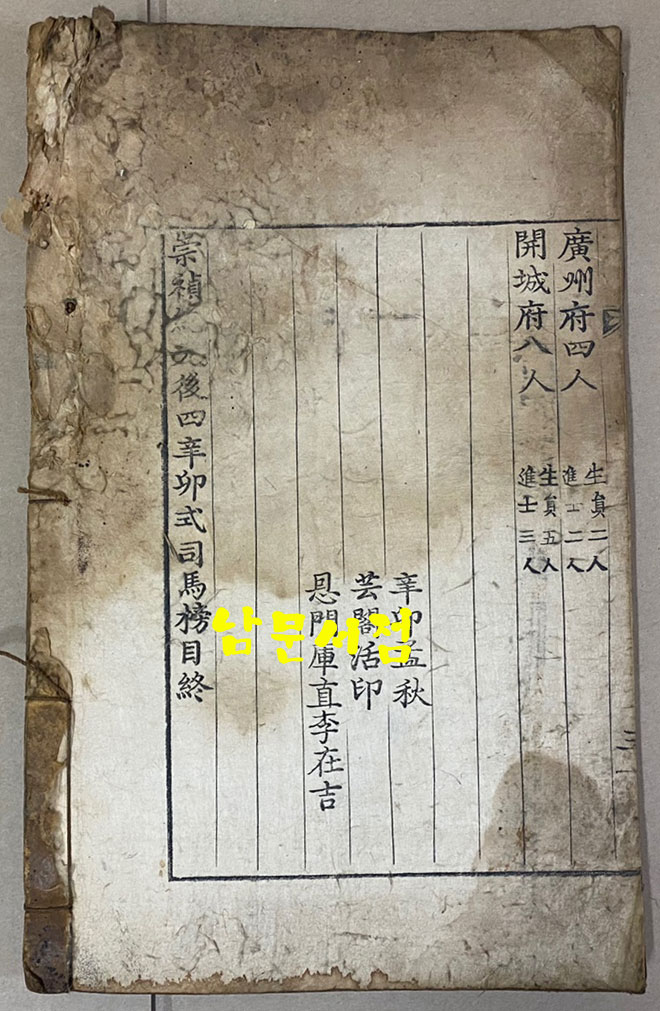 廣州府四人
生員二人
進士二人
開城府八人
生員五人
進士三人
辛卯孟秋
芸閣活印
恩門庫直李在吉
崇禎後四辛卯式司馬榜目終
남문서점